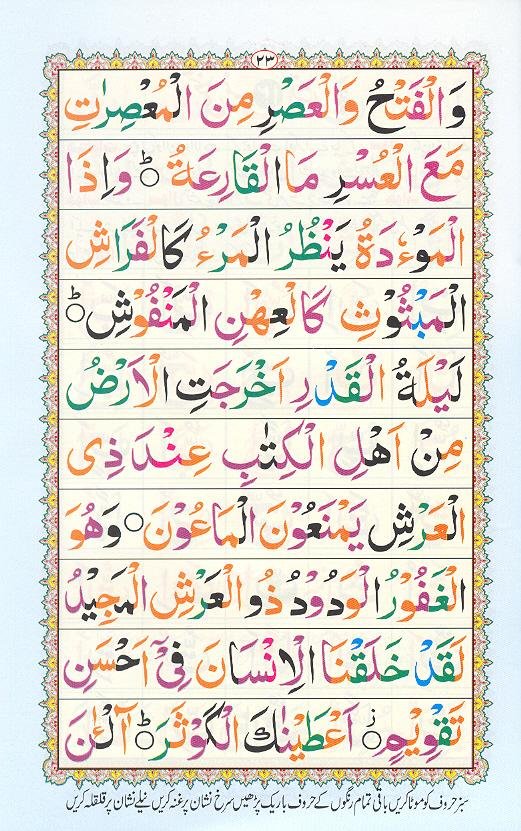 ٢٣
وَالْفَتْحُ وَالْعَصْرِ مِنَ الْمُعْصِرٰتِ
مَعَ الْعُسْرِ مَا الْقَارِعَةُ ۝ؕ وَاِذَا
الْمَوْءٗدَةُ يَنْظُرُ الْمَرْءُ كَالْفَرَاشِ
الْمَبْثُوْثِ كَالْعِهْنِ الْمَنْفُوْشِ ۝ؕ
لَيْلَةُ الْقَدْرِ اَخْرَجَتِ الْاَرْضُ
مِنْ اَهْلِ الْكِتٰبِ عِنْدَ ذِى
الْعَرْشِ يَمْنَعُوْنَ الْمَاعُوْنَ ۝ وَهُوَ
الْغَفُوْرُ الْوَدُوْدُ ذُو الْعَرْشِ الْمَجِيْدُ
لَقَدْ خَلَقْنَا الْاِنْسَانَ فِىْٓ اَحْسَنِ
تَقْوِيْمٍ ۝ز اَعْطَيْنٰكَ الْكَوْثَرَ ۝ؕ آلْـٰٔنَ
سبز حروف کو موٹا کریں باقی تمام رنگوں کے حروف باریک پڑھیں سرخ نشان پر غنہ کریں نیلے نشان پر قلقلہ کریں